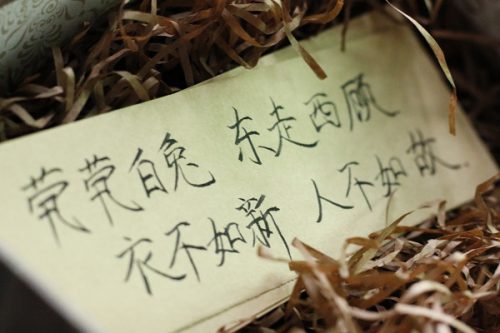 茕茕白兔 东走西顾
衣不如新 人不如故.